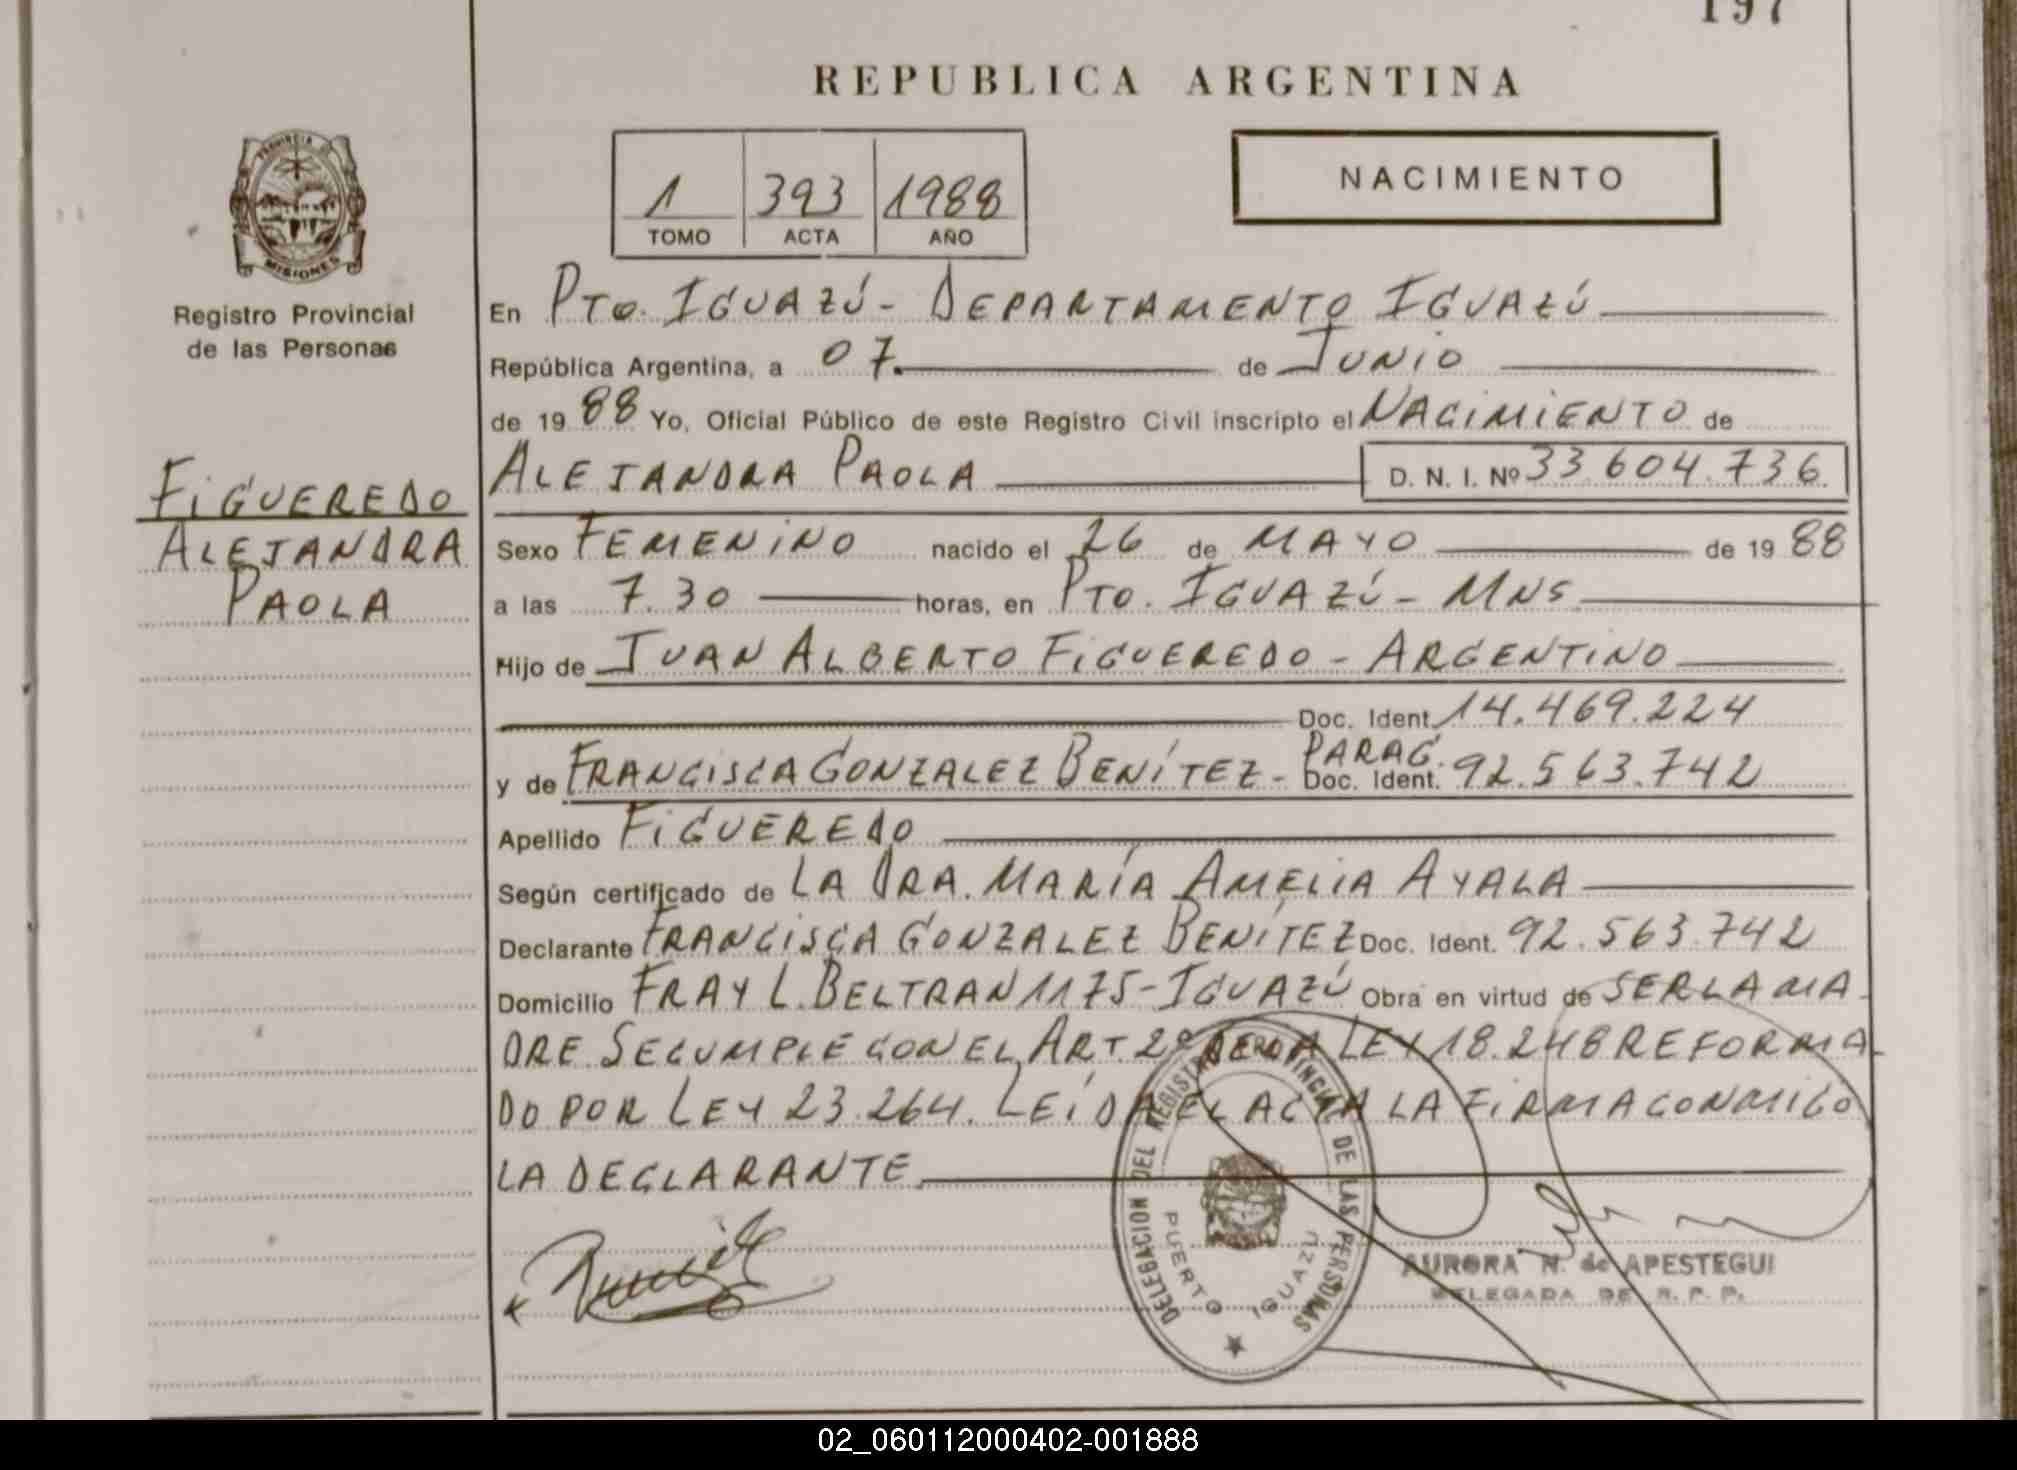 197
REPUBLICA ARGENTINA
PROVINCIA DE
MISIONES
Registro Provincial
de las Personas
1 393 1988
TOMO ACTA AÑO
NACIMIENTO
En PTO. IGUAZÚ - DEPARTAMENTO IGUAZÚ
República Argentina, a 07. de JUNIO
de 19 88 Yo, Oficial Público de este Registro Civil inscripto el NACIMIENTO de
ALEJANDRA PAOLA D. N. I. Nº 33.604.736.
FIGUEREDO
ALEJANDRA
PAOLA
Sexo FEMENINO nacido el 26 de MAYO de 19 88
a las 7.30 horas, en PTO. IGUAZÚ - MNS.
Hijo de JUAN ALBERTO FIGUEREDO - ARGENTINO
Doc. Ident. 14.469.224
y de FRANCISCA GONZALEZ BENÍTEZ - PARAG. Doc. Ident. 92.563.742
Apellido FIGUEREDO
Según certificado de LA DRA. MARÍA AMELIA AYALA
Declarante FRANCISCA GONZALEZ BENÍTEZ Doc. Ident. 92.563.742
Domicilio FRAY L. BELTRAN 1175 - IGUAZÚ Obra en virtud de SER LA MA-
DRE. SE CUMPLE CON EL ART. 2º DE LA LEY 18.248 REFORMA-
DO POR LEY 23.264. LEÍDA EL ACTA LA FIRMA CONMIGO
LA DECLARANTE.
DELEGACION DEL REGISTRO PROVINCIAL DE LAS PERSONAS
PUERTO IGUAZU
AURORA N. de APESTEGUI
DELEGADA DE R. P. P.
02_060112000402-001888